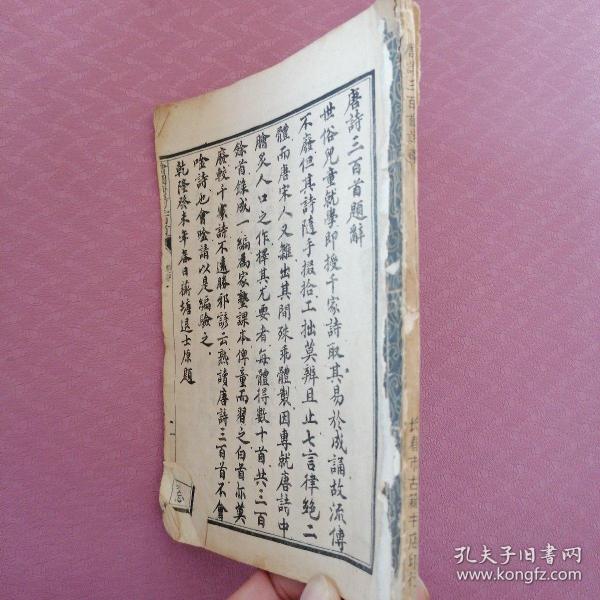 唐詩三百首題辭
世俗兒童就學即授千家詩取其易於成誦故流傳
不廢但其詩隨手掇拾工拙莫辨且止七言律絕二
體而唐宋人又雜出其間殊乖體製因專就唐詩中
膾炙人口之作擇其尤要者每體得數十首共三百
餘首錄成一編爲家塾課本俾童而習之白首亦莫
廢較千家詩不遠勝邪諺云熟讀唐詩三百首不會
吟詩也會吟請以是編驗之
乾隆癸未年春日蘅塘退士原題
唐詩三百首
长春市古籍书店印行
孔夫子旧书网
www.kongfz.com